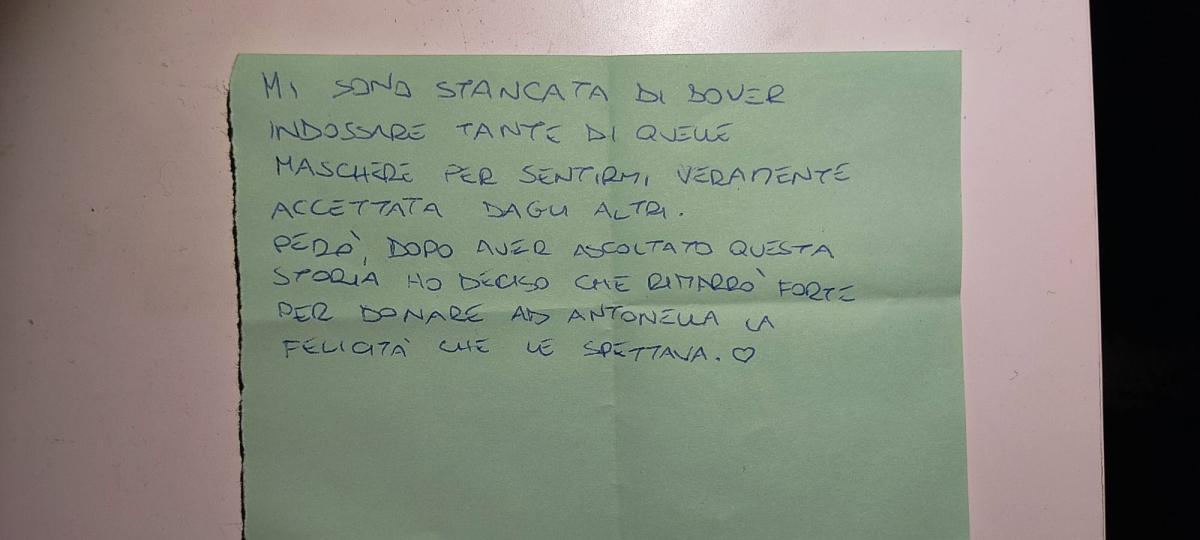 MI SONO STANCATA DI DOVER
INDOSSARE TANTE DI QUELLE
MASCHERE PER SENTIRMI VERAMENTE
ACCETTATA DAGLI ALTRI.
PERÒ, DOPO AVER ASCOLTATO QUESTA
STORIA HO DECISO CHE RIMARRÒ FORTE
PER DONARE AD ANTONELLA LA
FELICITÀ CHE LE SPETTAVA. ♡